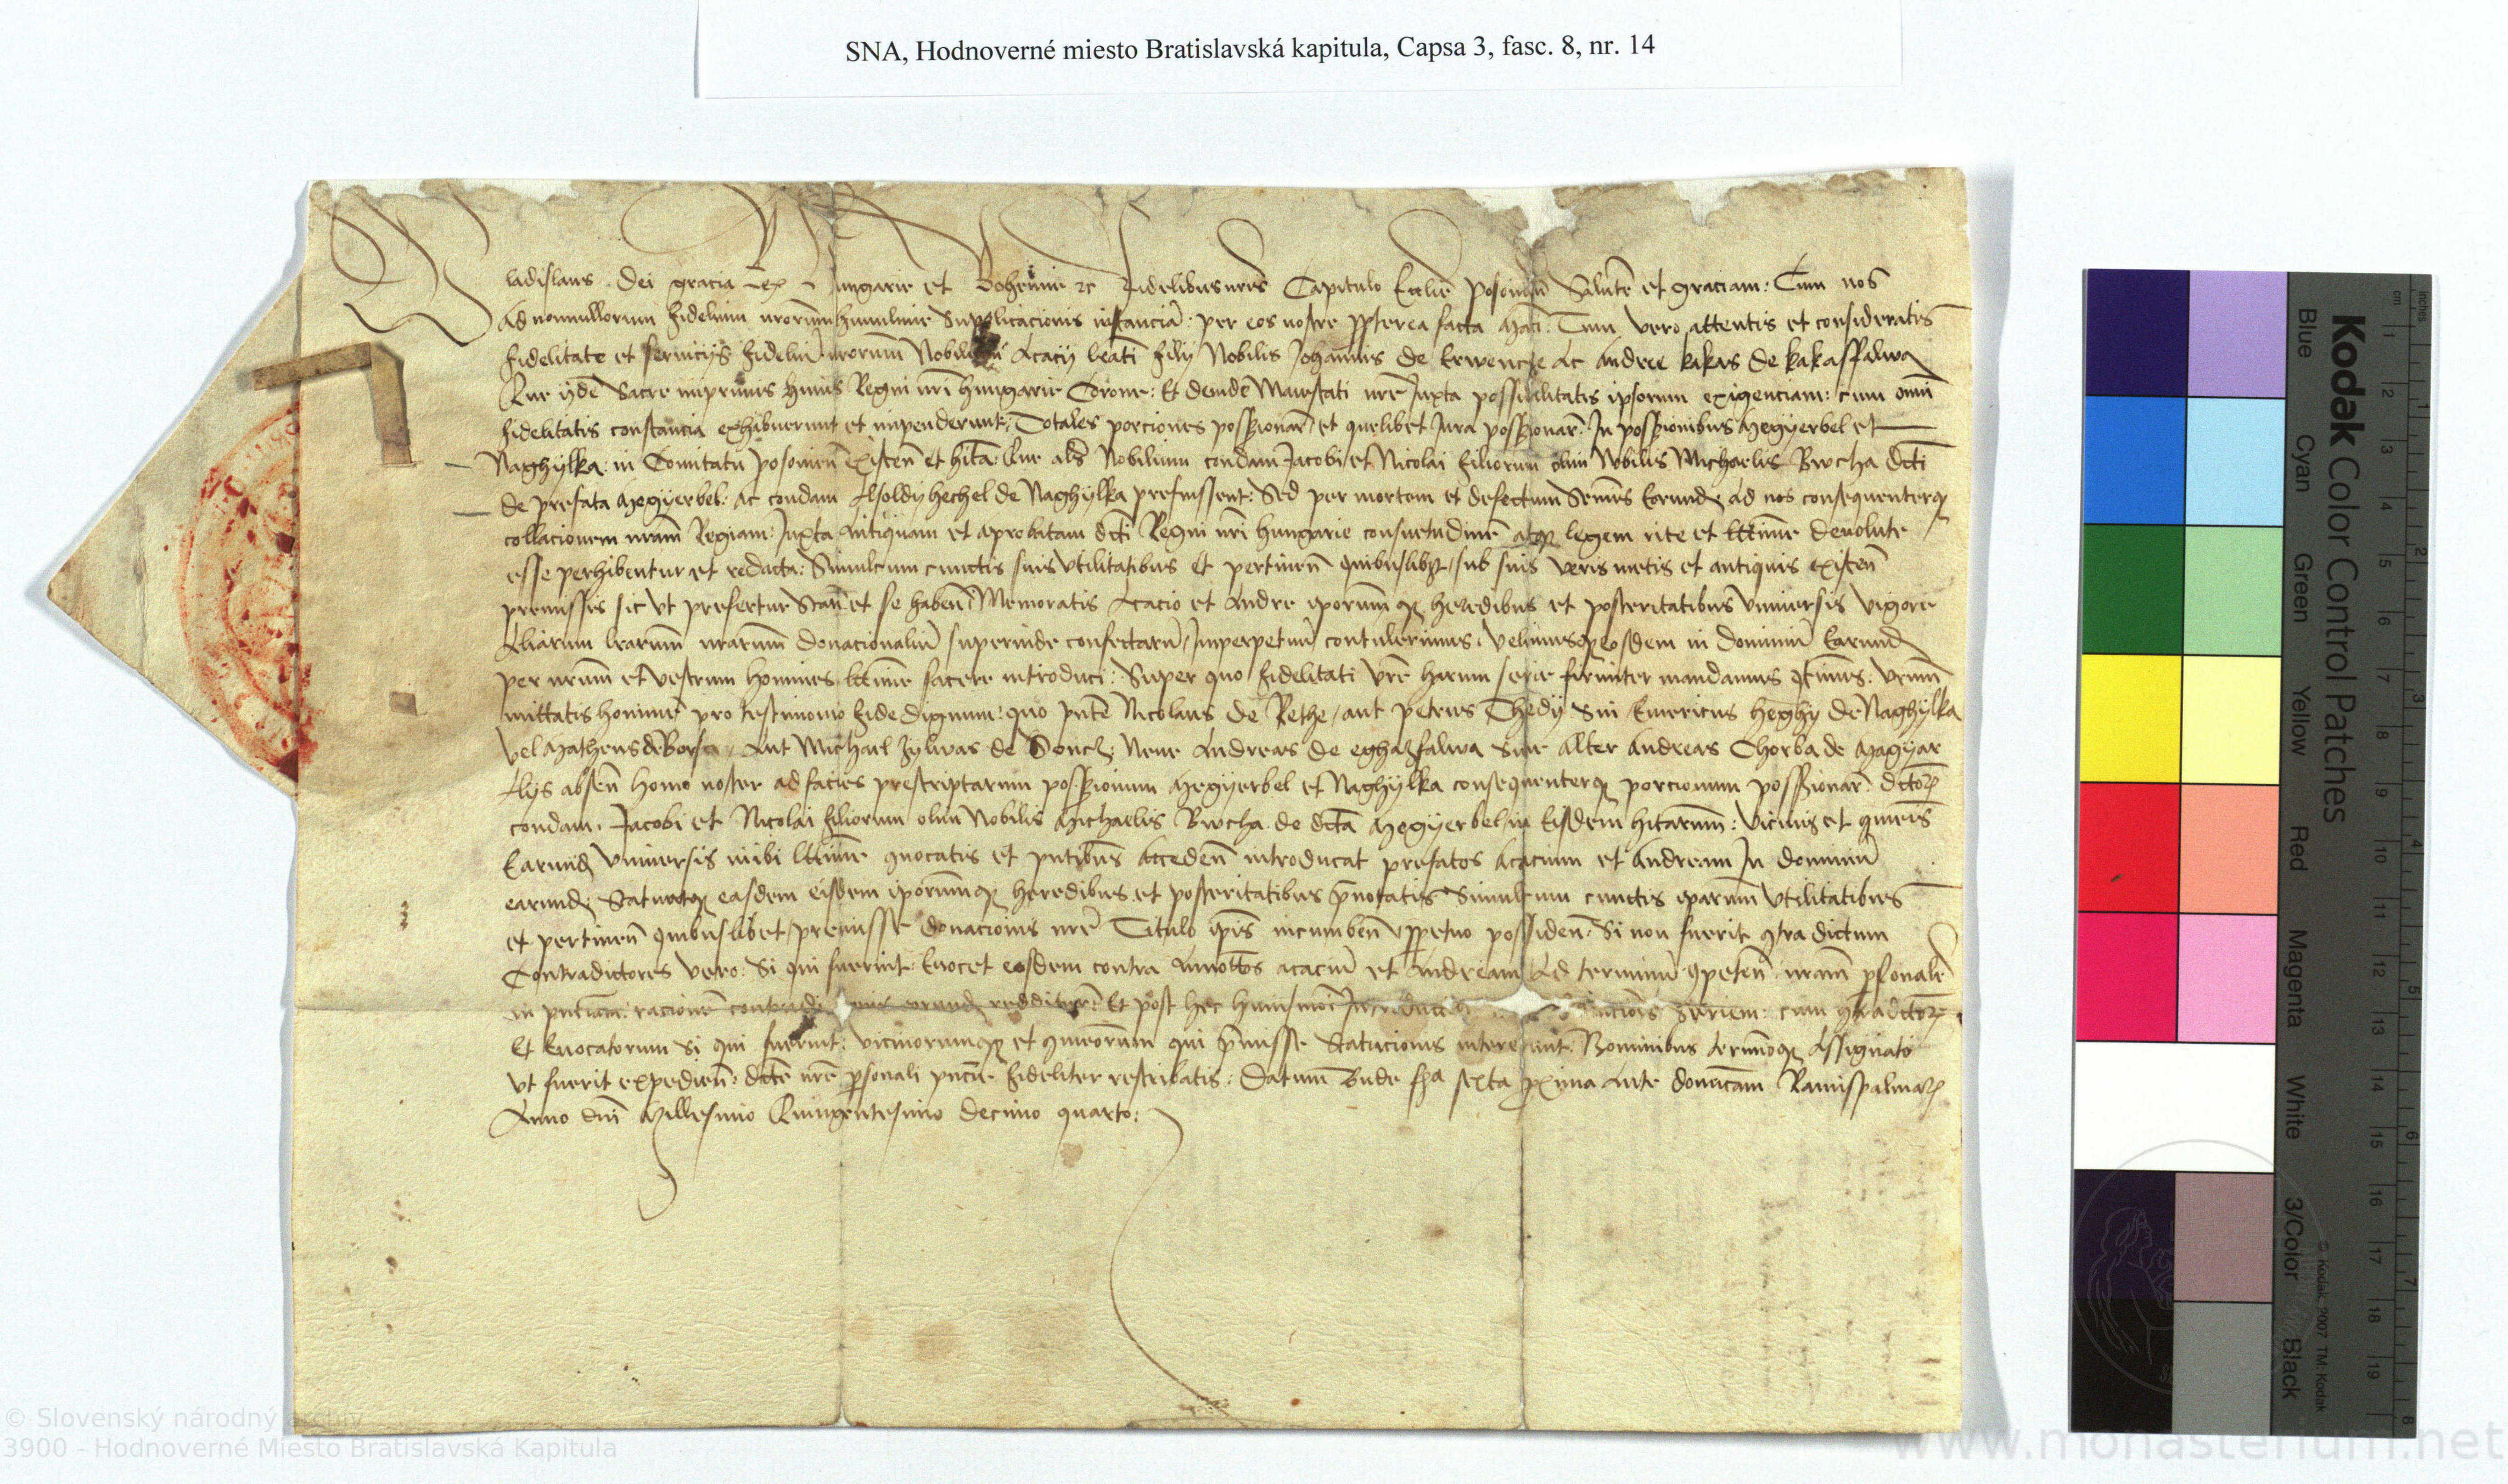 SNA, Hodnoverné miesto Bratislavská kapitula, Capsa 3, fasc. 8, nr. 14
Wladislaus Dei gracia Rex Hungarie et Bohemie etc Fidelibus nris Capitulo Ecclie Posonien Salutē et graciam: Cum nos
Ad nonnullorum fidelium nrorum humilime supplicacionis instanciā: per eos nostre ppterea facta Mati: Tum vero attentis et consideratis
fidelitate et seruicijs fideliū nrorum Nobilium Acacij leati filij Nobilis Johannis de Erwencze Ac Andree kakas de kakasffalwa
Que ijdē Sacre inprimis huius Regni nri hungarie Corone: Et deindē Maiestati nrē Juxta possibilitatis ipsorum exigenciam: cum omni
fidelitatis constancia exhibuerunt et impenderunt: Totales porciones possionar et quelibet Jura possionar: In possionibus Megÿerbel et
Naghÿlka: in Comitatu posonien existen et hitā: Que als Nobilium condam Jacobi et Nicolai filiorum olim Nobilis Michaelis Bwcha dcti
de prefata Megÿerbel: Ac condam hechel de Naghÿlka prefuissent: Sed per mortem et defectum Seminis Eorundē Ad nos consequenterq
collacionem nram Regiam: Juxta Antiquam et aprobatam dcti Regni nri hungarie consuetudinē atq legem rite et lttime deuolute
esse perhibentur et redacta: Simulcum cunctis suis vtilitatibus et pertinen quibuslibȝ sub suis veris metis et antiquis existen
premissis sic vt prefertur Stan et se haben Memoratis Acacio et Andre iporum q heredibus et posteritatibus vniuersis vigore
Aliarum lrarum nrarum donacionaliū superinde confectarū Imperpetuū contulerimus: velimusq eosdem in dominiū Earund
per nrum et vestrum homines lttime facere introduci: Super quo fidelitati vrē harum serie firmiter mandamus qtinus: vrum
mittatis hominē pro testimonio fide dignum: quo pnte Nicolaus de Rethe aut petrus Thedÿ Siu Emericus heghÿ de Naghÿlka
vel Matheus de Borsa Aut Michael de Doncz: Neue Andreas de eghazfalwa Siue Alter Andreas Chorba de Magÿar
Alijs absen homo noster ad facies prescriptarum possionum Megÿerbel et Naghÿlka consequenterq porcionum possionar: dctoꝝ
condam Jacobi et Nicolai filiorum olim Nobilis Michaelis Bwcha de dcta Megÿerbel in Eisdem hitarum: vicinis et qmetis
Earund vniuersis inibi lttime quocatis et pntibus Acceden introducat prefatos Acacium et Andream In dominiū
earund Statuatq easdem eisdem iporumq heredibus et posteritatibus pnotatis Simulcum cunctis iparum vtilitatibus
et pertinen quibuslibet premisse donacionis nrē Titulo ipis incumben pperpetuo possiden: Si non fuerit qtra dictum
Contradictores vero: Si qui fuerint: Euocet eosdem contra Annottos acaciū et Andream Ad terminū qpeten nram psonalē
in pntiam: racionē contradi eorund reddituros: Et post hec huiusmoi Introduc seriem: cum qtradctoꝝ
Et Euocatorum Si qui fuerint: vicinorumq et qmetorum qui pmisse Statucionis intererint: Nominibus terminoq Assignato
vt fuerit expedien: dcte nrē psonali pncie fideliter rescribatis: Datum Bude fia sexta pxima Ante domcam Ramispalmaꝝ
Anno dni Millesimo Quingentesimo decimo quarto:
Kodak Color Control Patches
Blue
Cyan
Green
Yellow
Red
Magenta
White
3/Color
Black
© Kodak, 2007 TM: Kodak
cm
inches
1 2 3 4 5 6 7 8 9 10 11 12 13 14 15 16 17 18 19
1 2 3 4 5 6 7 8
© Slovenský národný archív
3900 - Hodnoverné Miesto Bratislavská Kapitula
www.monasterium.net